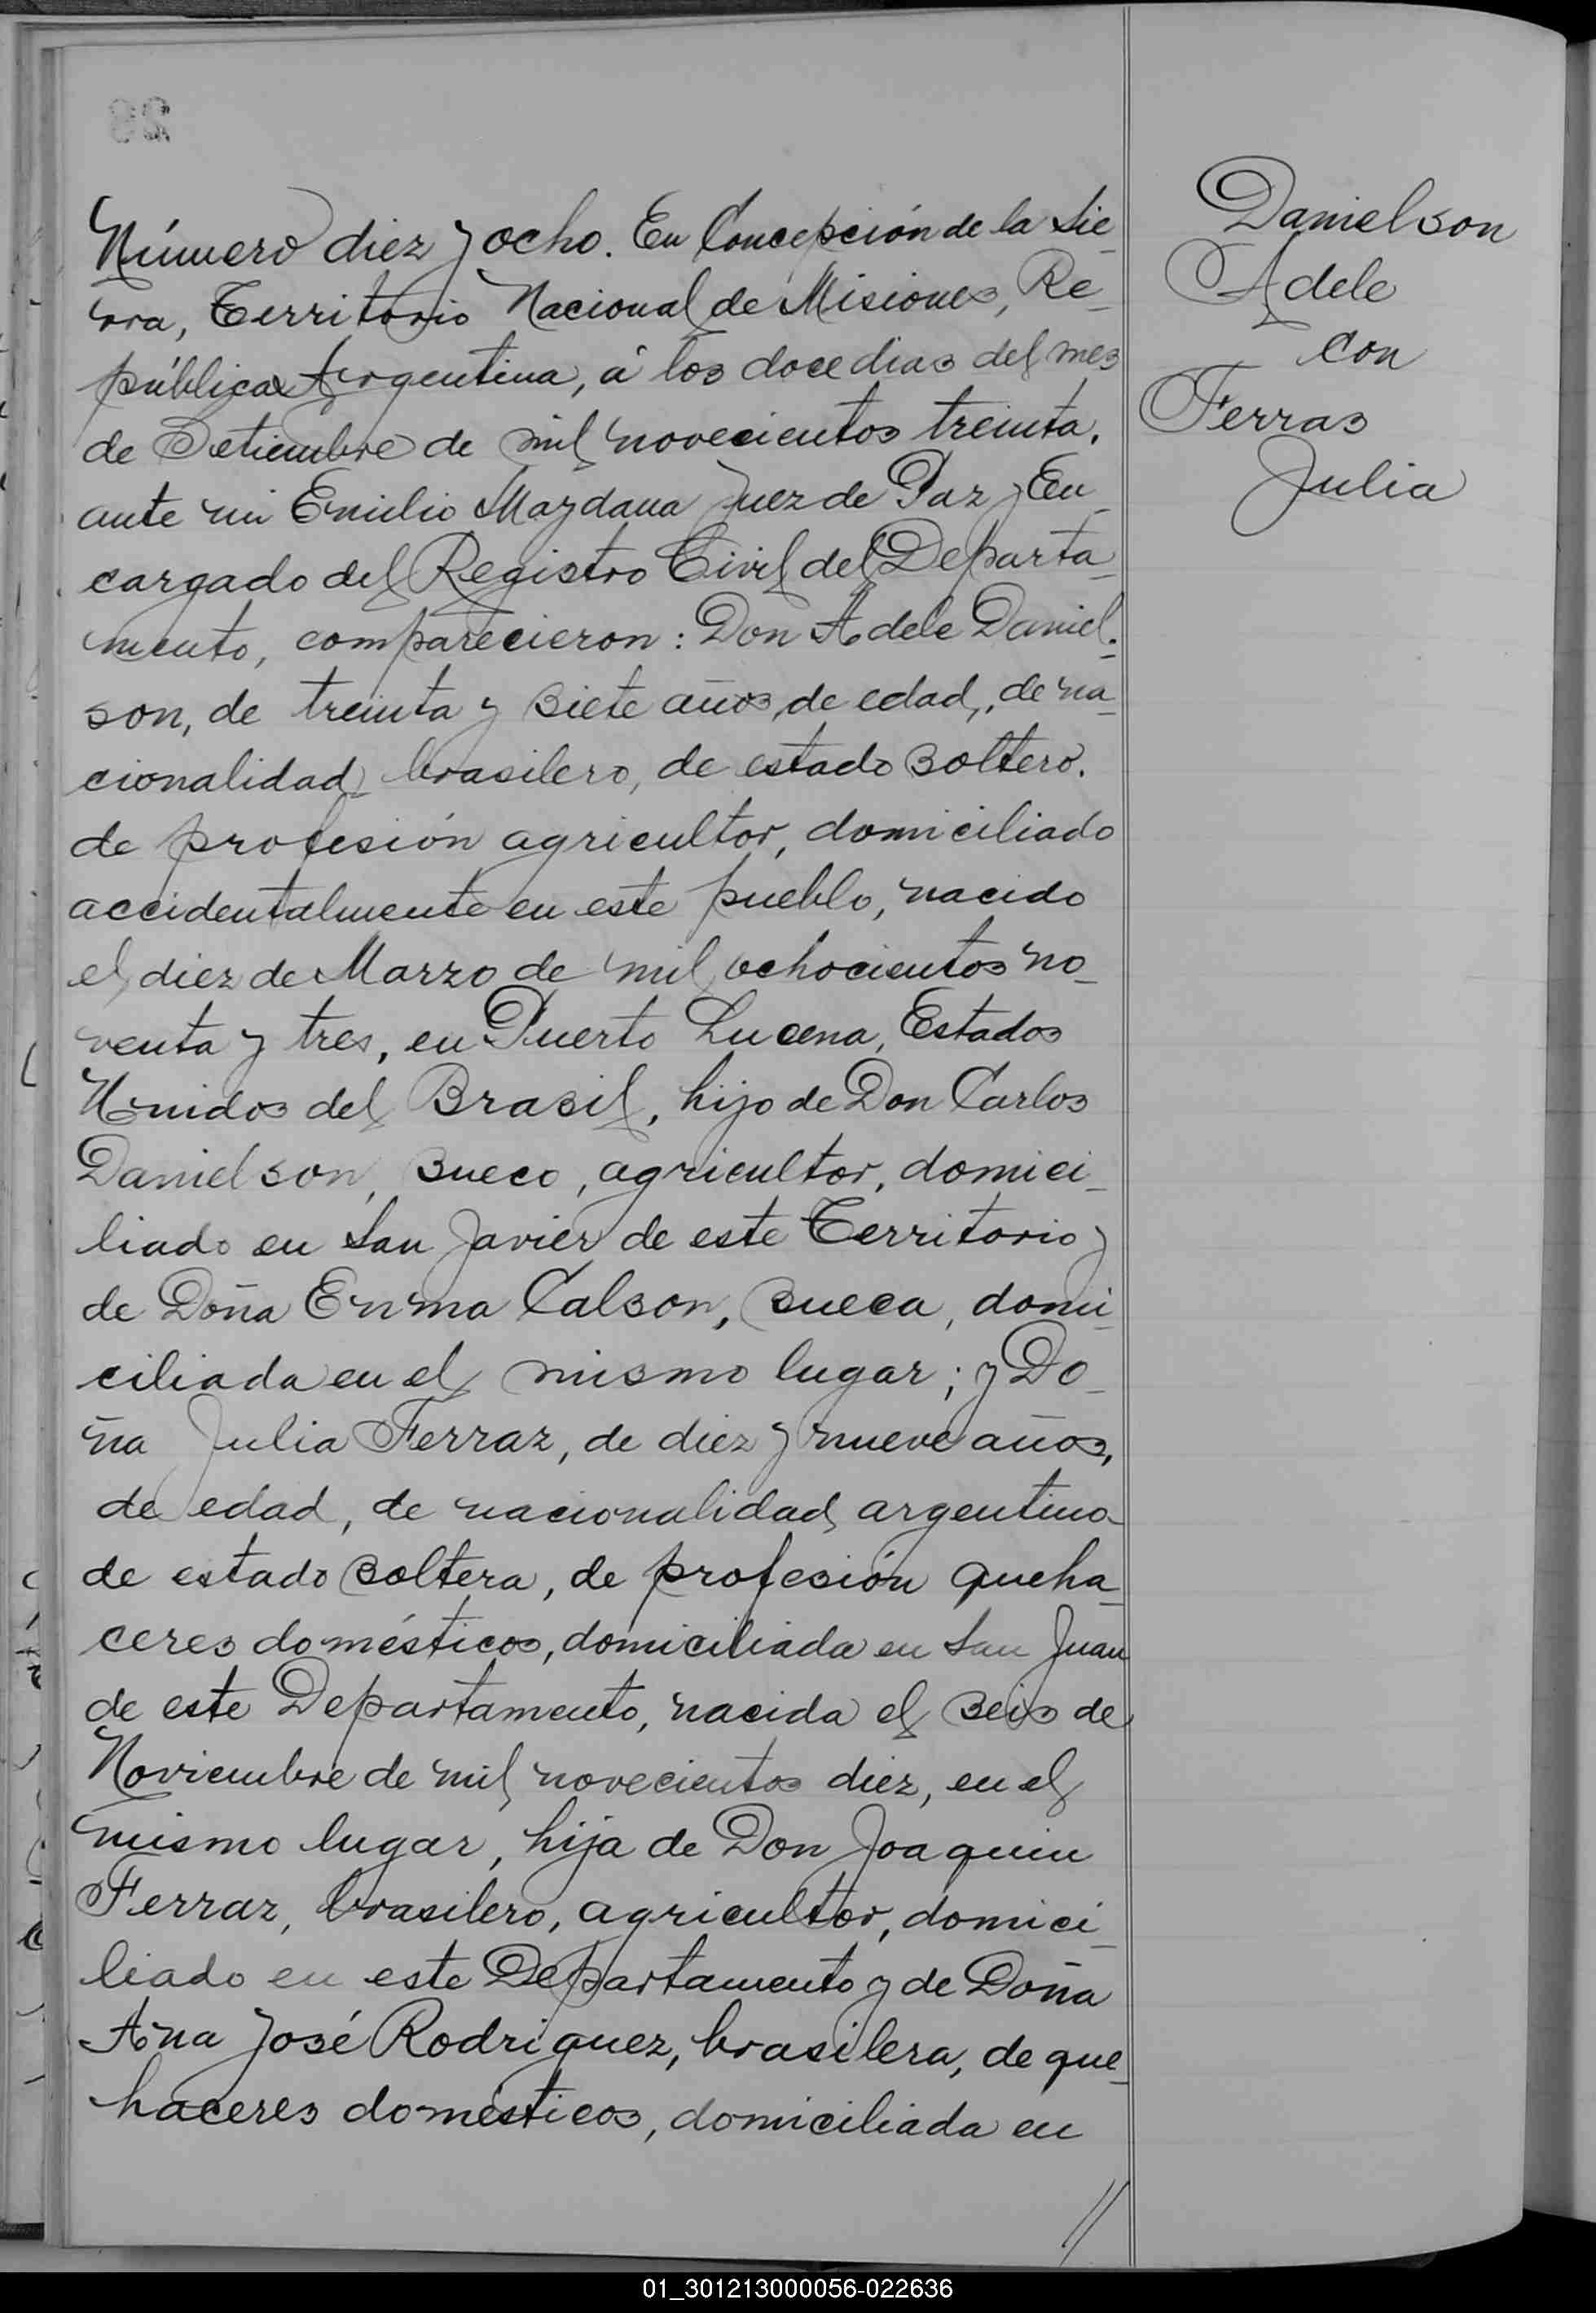 28
Número diez y ocho. En Concepción de la Sie-
rra, Territorio Nacional de Misiones, Re-
pública Argentina, á los doce dias del mes
de Setiembre de mil novecientos treinta,
ante mi Emilio Maydana Juez de Paz y En-
cargado del Registro Civil del Departa-
mento, comparecieron: Don Adele Daniel-
son, de treinta y siete años, de edad, de na-
cionalidad brasilero, de estado soltero.
de profesión agricultor, domiciliado
accidentalmente en este pueblo, nacido
el diez de Marzo de mil ochocientos no-
venta y tres, en Puerto Lucena, Estados
Unidos del Brasil, hijo de Don Carlos
Danielson, sueco, agricultor, domici-
liado en San Javier de este Territorio y
de Doña Enma Calson, sueca, domi-
ciliada en el mismo lugar; y Do-
ña Julia Ferraz, de diez y nueve años,
de edad, de nacionalidad argentina
de estado soltera, de profesión queha-
ceres domésticos, domiciliada en San Juan
de este Departamento, nacida el seis de
Noviembre de mil novecientos diez, en el
mismo lugar, hija de Don Joaquin
Ferraz, brasilero, agricultor, domici-
liado en este Departamento y de Doña
Ana José Rodriguez, brasilera, de que-
haceres domésticos, domiciliada en
//
Danielson
Adele
con
Ferras
Julia
01_301213000056-022636